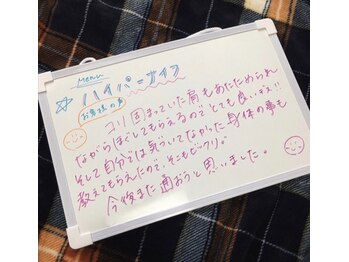 Menu
☆ハイパーナイフ
お客様の声
コリ固まっていた肩もあたためられ
ながらほぐしてもらえるのでとても良いです!!
そして自分では気づいてなかった身体の事も
教えてもらえたので、そこもビックリ。
今後また通おうと思いました。